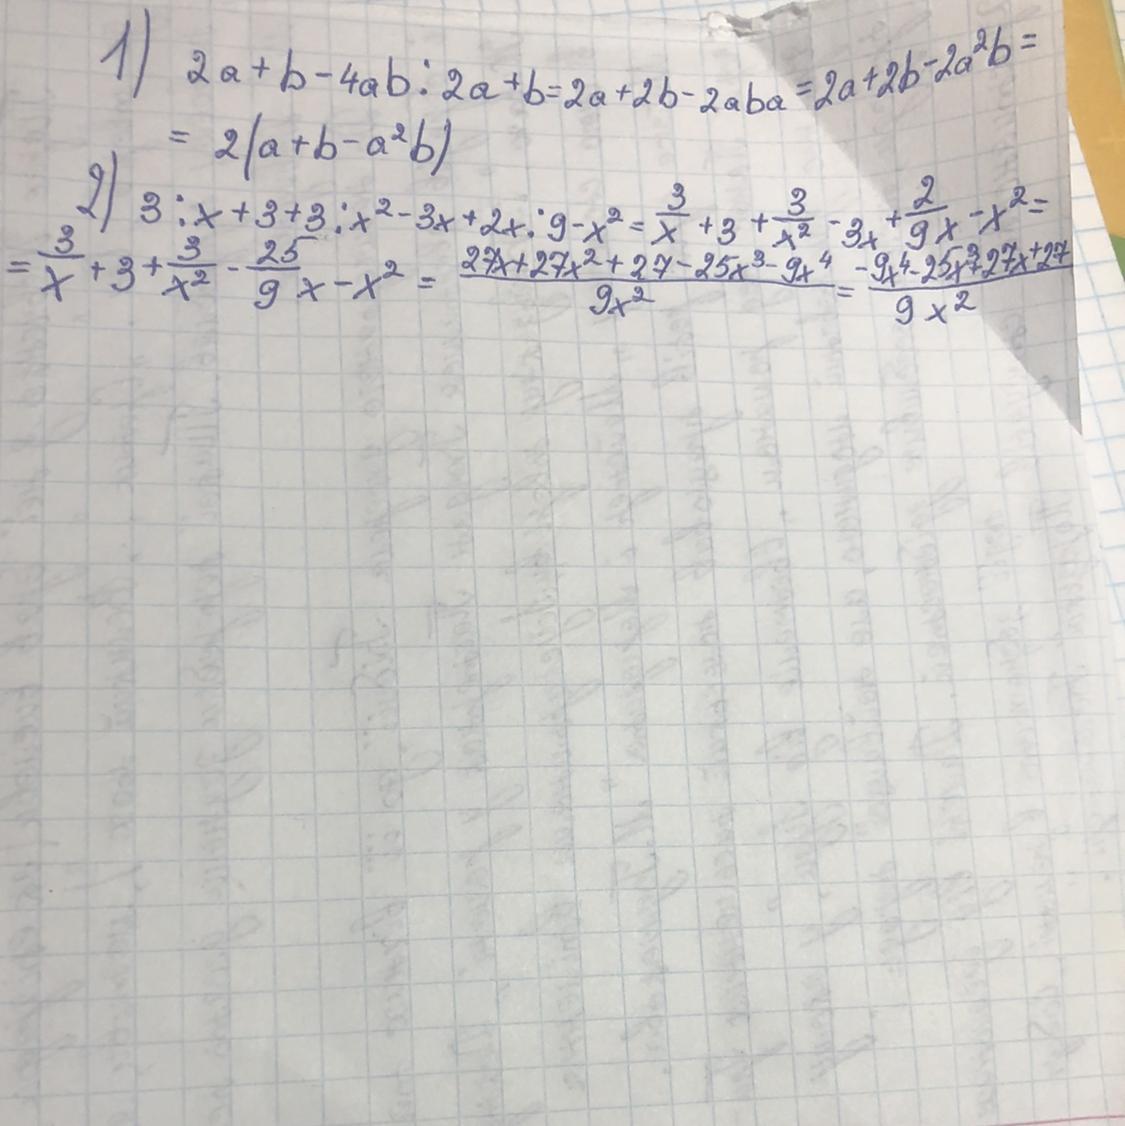 1) 2a + b - 4ab : 2a + b = 2a + 2b - 2aba = 2a + 2b - 2a²b =
= 2(a + b - a²b)
2) 3 : x + 3 + 3 : x² - 3x + 2x : 9 - x² = 3/x + 3 + 3/x² - 3x + 2/9 x - x² =
= 3/x + 3 + 3/x² - 25/9 x - x² = (27x + 27x² + 27 - 25x³ - 9x⁴)/9x² = (-9x⁴ - 25x³ + 27x + 27)/9x²